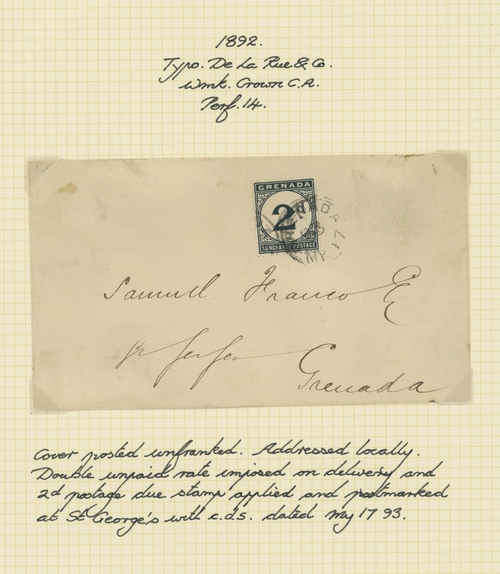 1892.
Typo. De La Rue & Co.
Wmk. Crown C.A.
Perf. 14.
GRENADA
2d
SURCHARGE POSTAGE
MY 17
Samuel Franco E
Grenada
Cover posted unfranked. Addressed locally.
Double unpaid rate imposed on delivery and
2d postage due stamp applied and postmarked
at St George's with c.d.s. dated my 17 93.